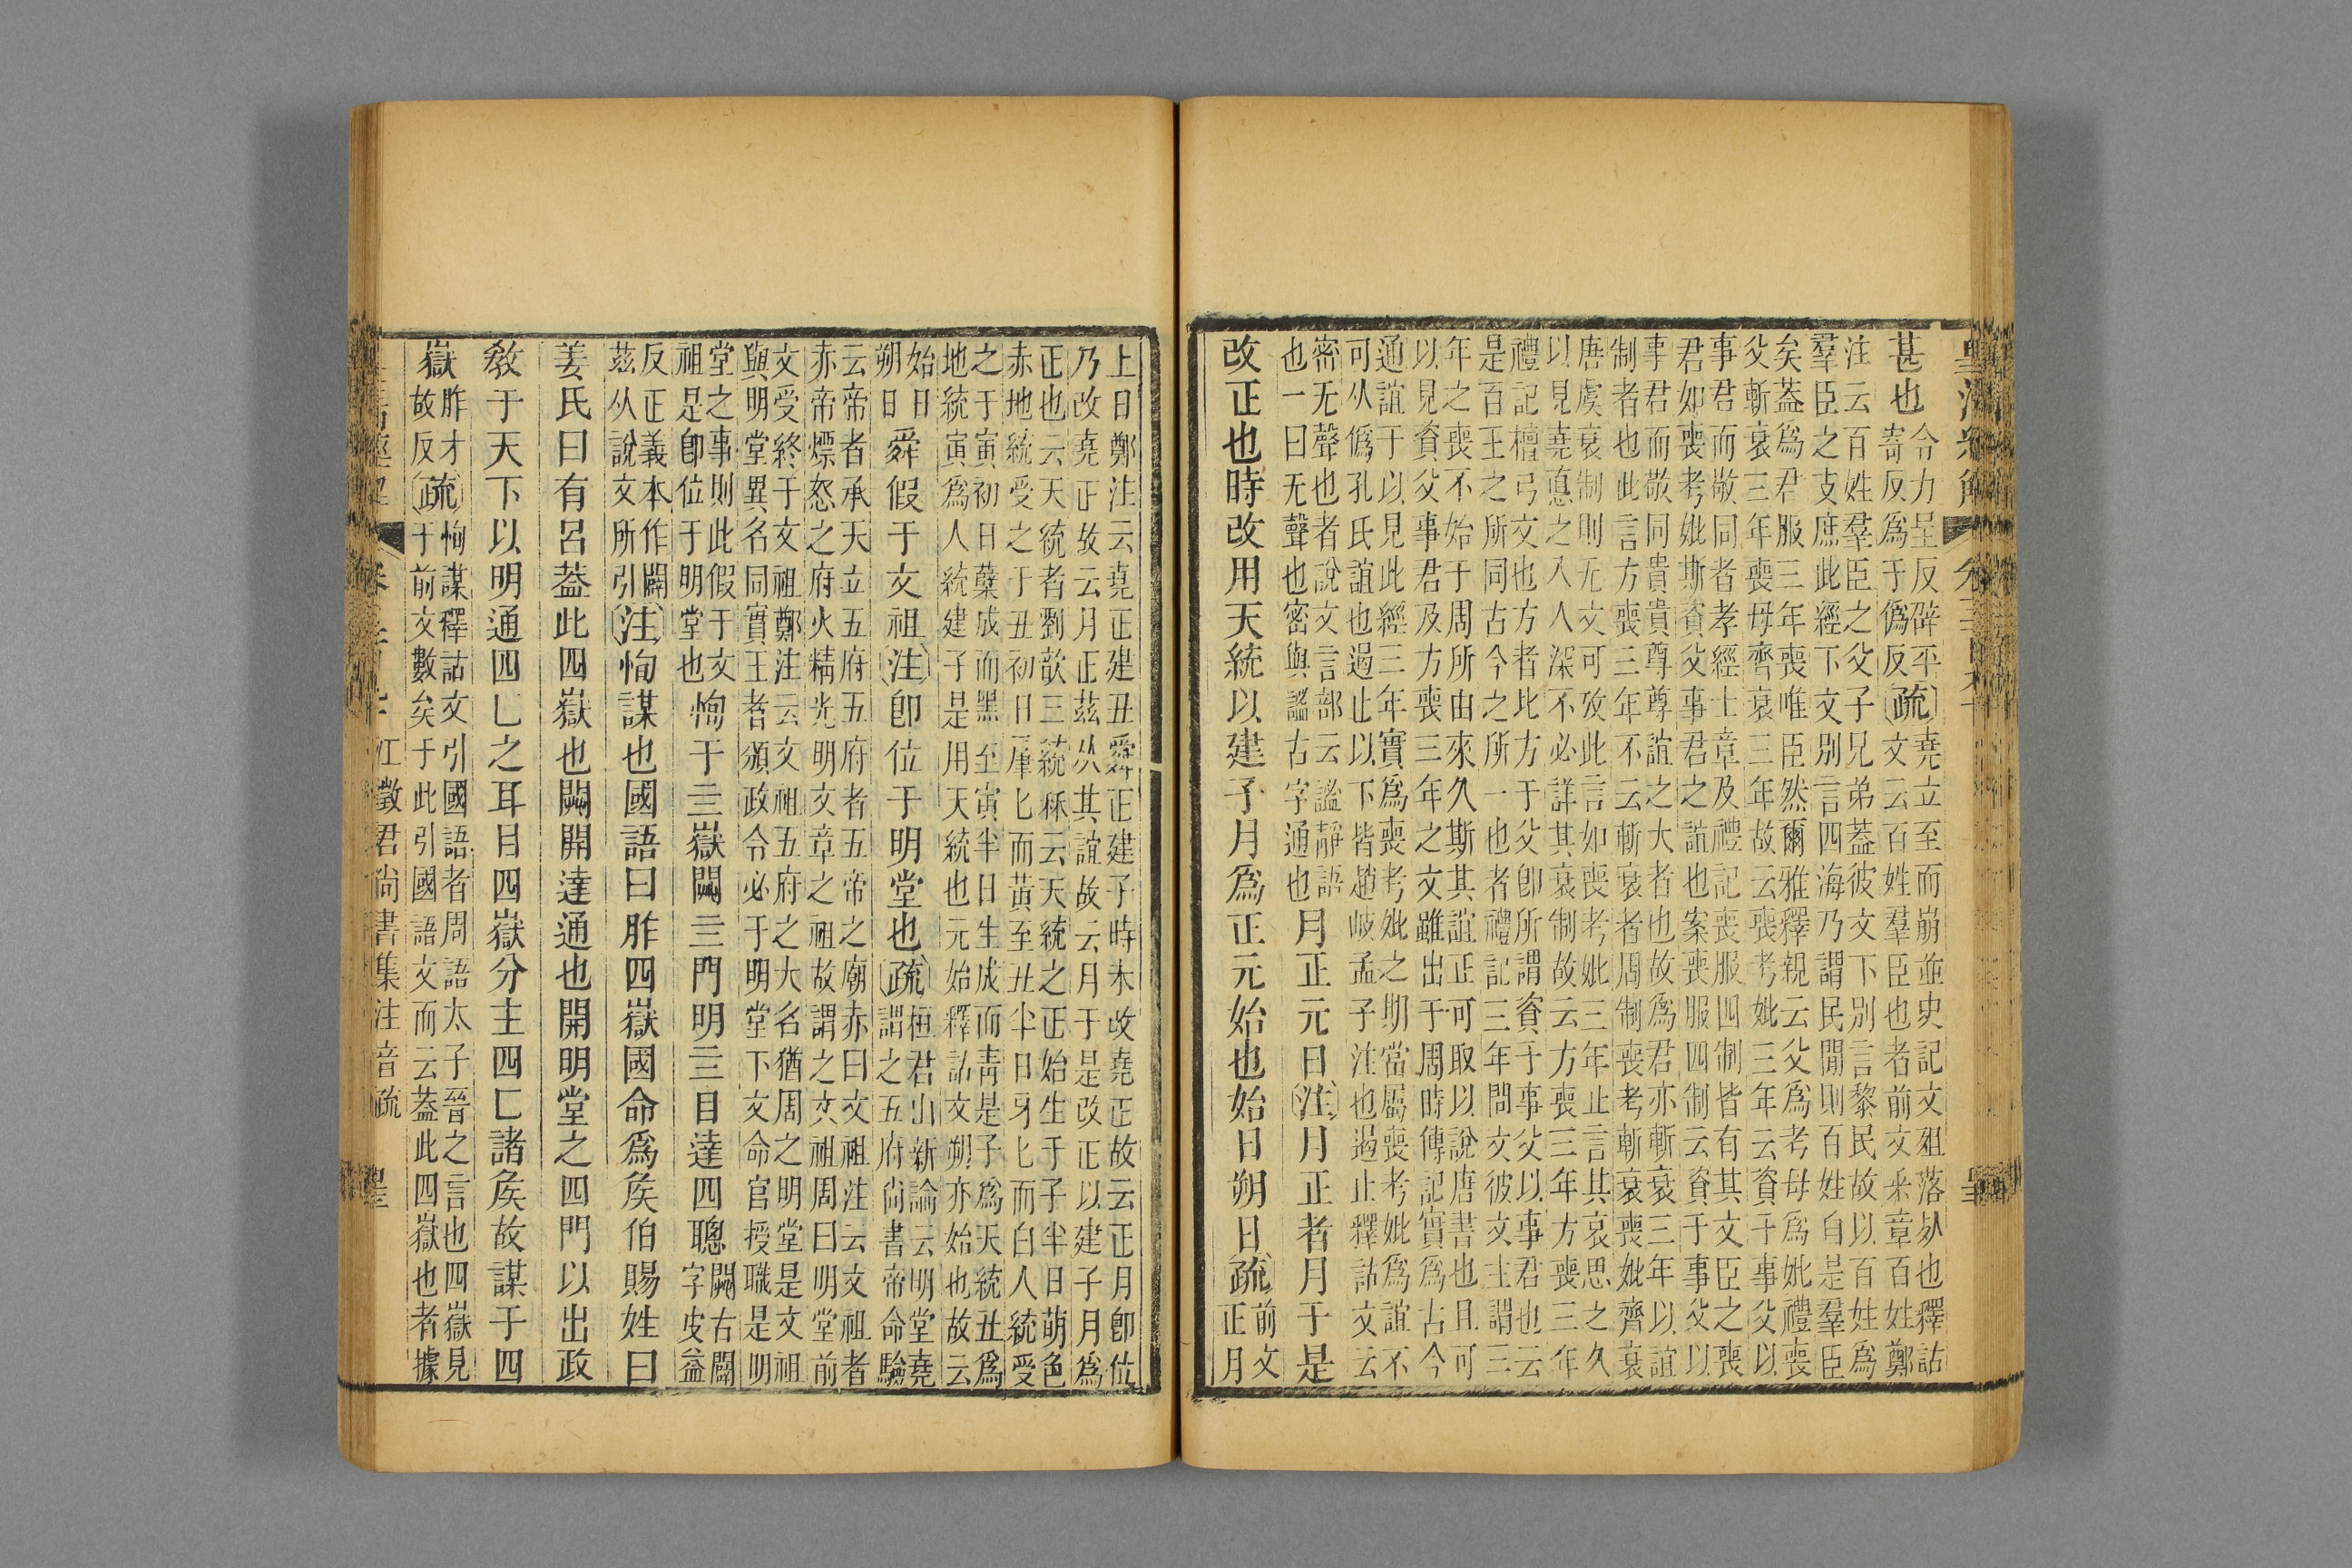 皇清經解 卷三百九十
甚也 令力呈反辟平
奇反爲于僞反
疏 堯立至而崩並史記文殂落𣦸也釋詁
文云百姓羣臣也者前文釆章百姓鄭
注云百姓羣臣之父子兄弟葢彼文下別言黎民故以百姓爲
羣臣之支庶此經下文別言四海乃謂民閒則百姓自是羣臣
矣葢爲君服三年喪唯臣然爾雅釋親云父爲考母爲妣禮喪
父斬衰三年喪母齊衰三年故云喪考妣三年云資于事父以
事君而敬同者孝經士章及禮記喪服四制皆有其文臣之喪
君如喪考妣斯資父事君之誼也案喪服四制云資于事父以
事君而敬同貴貴尊尊誼之大者也故爲君亦斬衰三年以誼
制者也此言方喪三年不云斬衰者周制喪考斬衰喪妣齊衰
唐虞衰制則无文可攷此言如喪考妣三年止言其哀思之久
以見堯悳之入人深不必詳其衰制故云方喪三年方喪三年
禮記檀弓文也方者比方于父卽所謂資于事父以事君也云
是百王之所同古今之所一也者禮記三年問文彼文主謂三
年之喪不始于周所由來久斯其誼正可取以說唐書也且可
以見資父事君及方喪三年之文雖出于周時傳記實爲古今
通誼于以見此經三年實爲喪考妣之期當屬喪考妣爲誼不
可从僞孔氏誼也遏止以下皆趙岐孟子注也遏止釋詁文云
密无聲也者說文言部云謐靜語
也一曰无聲也密與謐古字通也
月正元日注月正者月于是
改正也時改用天統以建子月爲正元始也始日朔日疏 前文
正月
上日鄭注云堯正建丑舜正建子時未改堯正故云正月卽位
乃改堯正故云月正茲从其誼故云月于是改正以建子月爲
正也云天統者劉歆三統秝云天統之正始生于子半日萌色
赤地統受之于丑初日肈𠤎而黃至丑半日牙𠤎而白人統受
之于寅初日孽成而黑至寅半日生成而靑是子爲天統丑爲
地統寅爲人統建子是用天統也元始釋詁文朔亦始也故云
始日
朔日
舜假于文祖注卽位于明堂也疏 桓君山新論云明堂堯
謂之五府尚書帝命驗
云帝者承天立五府五府者五帝之廟赤曰文祖注云文祖者
赤帝熛怒之府火精光明文章之祖故謂之文祖周曰明堂前
文受終于文祖鄭注云文祖五府之大名猶周之明堂是文祖
與明堂異名同實王者頒政令必于明堂下文命官授職是明
堂之事則此假于文
祖是卽位于明堂也
恂于亖嶽闢亖門明亖目達四聰 闢右闢
字皮益
反正義本作闢
茲从說文所引
注恂謀也國語曰胙四嶽國命爲矦伯賜姓曰
姜氏曰有呂葢此四嶽也闢開達通也開明堂之四門以出政
敎于天下以明通四匚之耳目四嶽分主四匚諸矦故謀于四
嶽 胙才
故反
疏 恂謀釋詁文引國語者周語太子晉之言也四嶽見
于前文數矣于此引國語文而云葢此四嶽也者據
江徵君尚書集注音疏